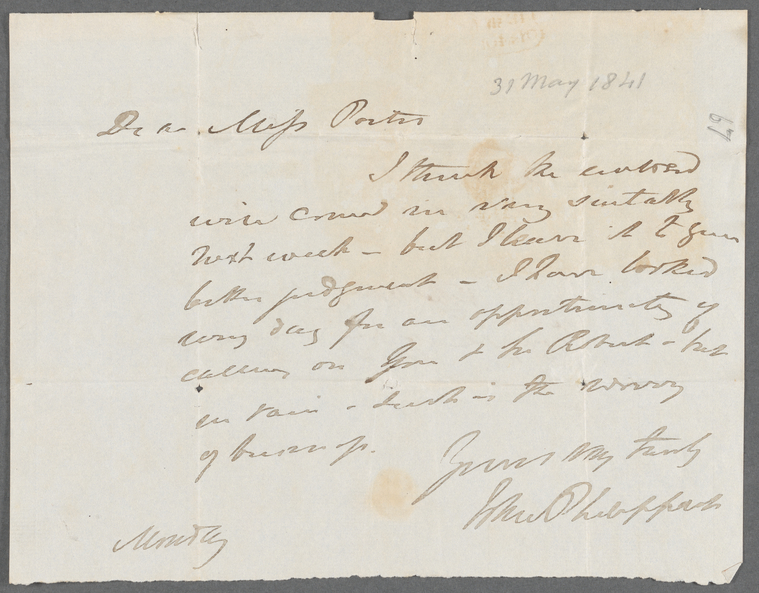 31 May 1841
67
Dear Miss Porter
I think the enclosed
will come in very suitably
next week – but I leave it to your
better judgment – I have looked
every day for an opportunity of
calling on you & Sir Robert – but
in vain – such is the worry
of business.
Yours very truly
John Philippart
Monday